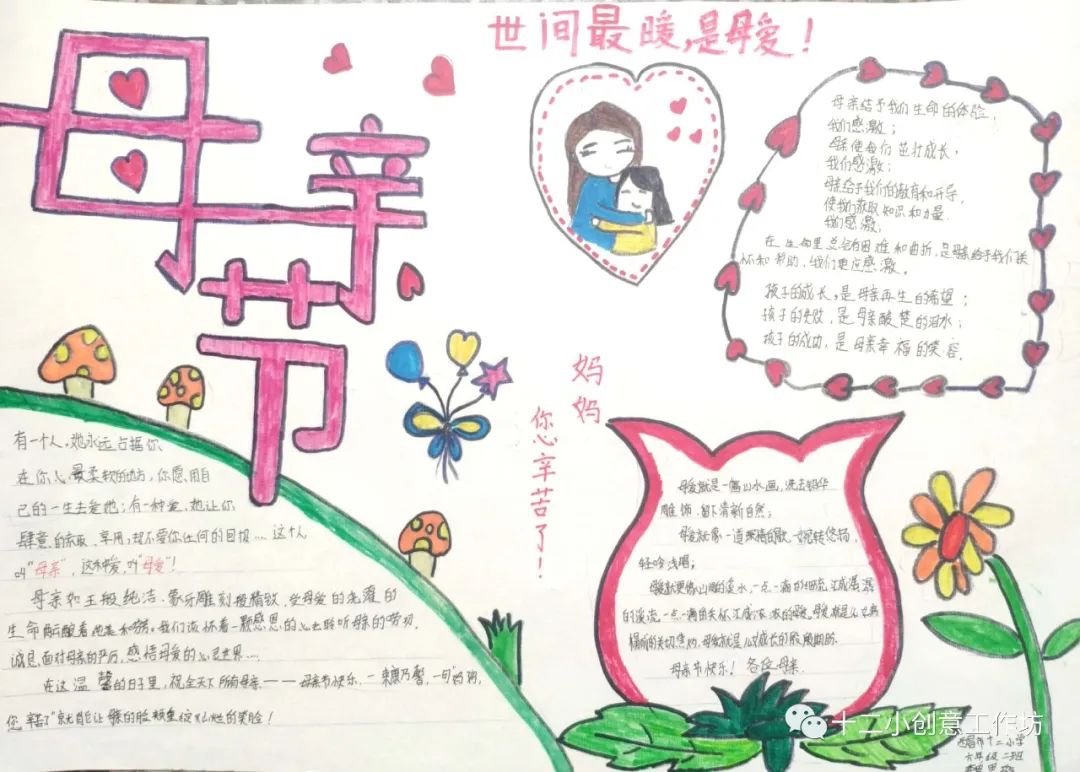 世间最暖,是母爱!
母亲节
母亲给予我们生命的体验,
我们感激;
母亲使我们茁壮成长,
我们感激;
母亲给予我们的教育和开导,
使我们获取知识和力量
我们感激;
在生命里总会有困难和曲折,是母亲给予我们关
怀和帮助,我们更应感激。
孩子的成长,是母亲再生的希望;
孩子的失败,是母亲酸楚的泪水;
孩子的成功,是母亲幸福的笑容。
妈妈
你心辛苦了!
有一个人,她永远占据你
在你心最柔软的地方,你愿用自
己的一生去爱她;有一种爱,她让你
肆意的索取、享用,却不要你任何的回报....这个人
叫“母亲”,这种爱,叫“母爱”!
母亲和玉般纯洁、象牙雕刻般精致,坐母爱的光灌的
生命
我们该怀着一颗感恩的心去聆听母亲的劳叨,
诚恳面对母亲的严厉,感悟母爱的心灵世界....
在这温馨的日子里,祝全天下所有母亲——母亲节快乐.一束康乃馨,一句
您辛苦了”就能让母亲的脸
灿烂的笑脸!
母爱就是一幅山水画,洗去铅华
雕饰,留下清新自然;
母爱就像一道深情的歌,婉转悠扬,
轻吟浅唱;
一点一滴
母亲节快乐!各位母亲
十二小创意工作坊
十二小学
六年级二班